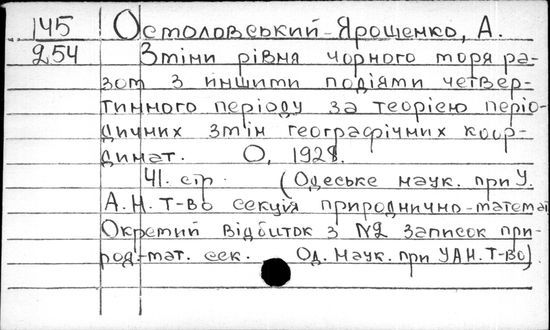 145 Остоловський-Ярошенко, А.
254 Зміни рівня чорного моря ра-
зом з иншими подіями четвер-
тинного періоду за теорією періо-
дичних змін географічних коор-
динат. О, 1928.
41. стр. (Одеське наук. при У.
А. Н. т-во секція природничо-матема
Окремий відбиток з №2 записок при-
род.-мат. сек. Од. наук. при УАН. т-во)